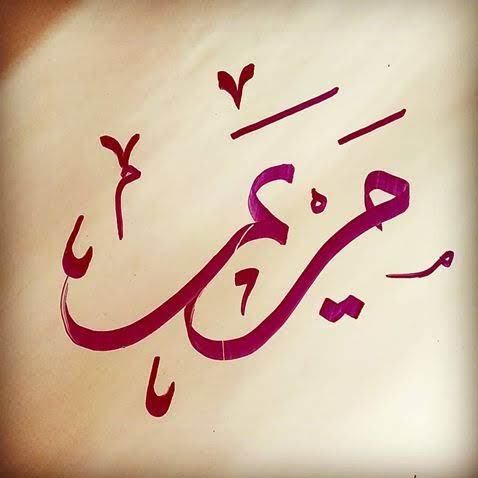 مريم